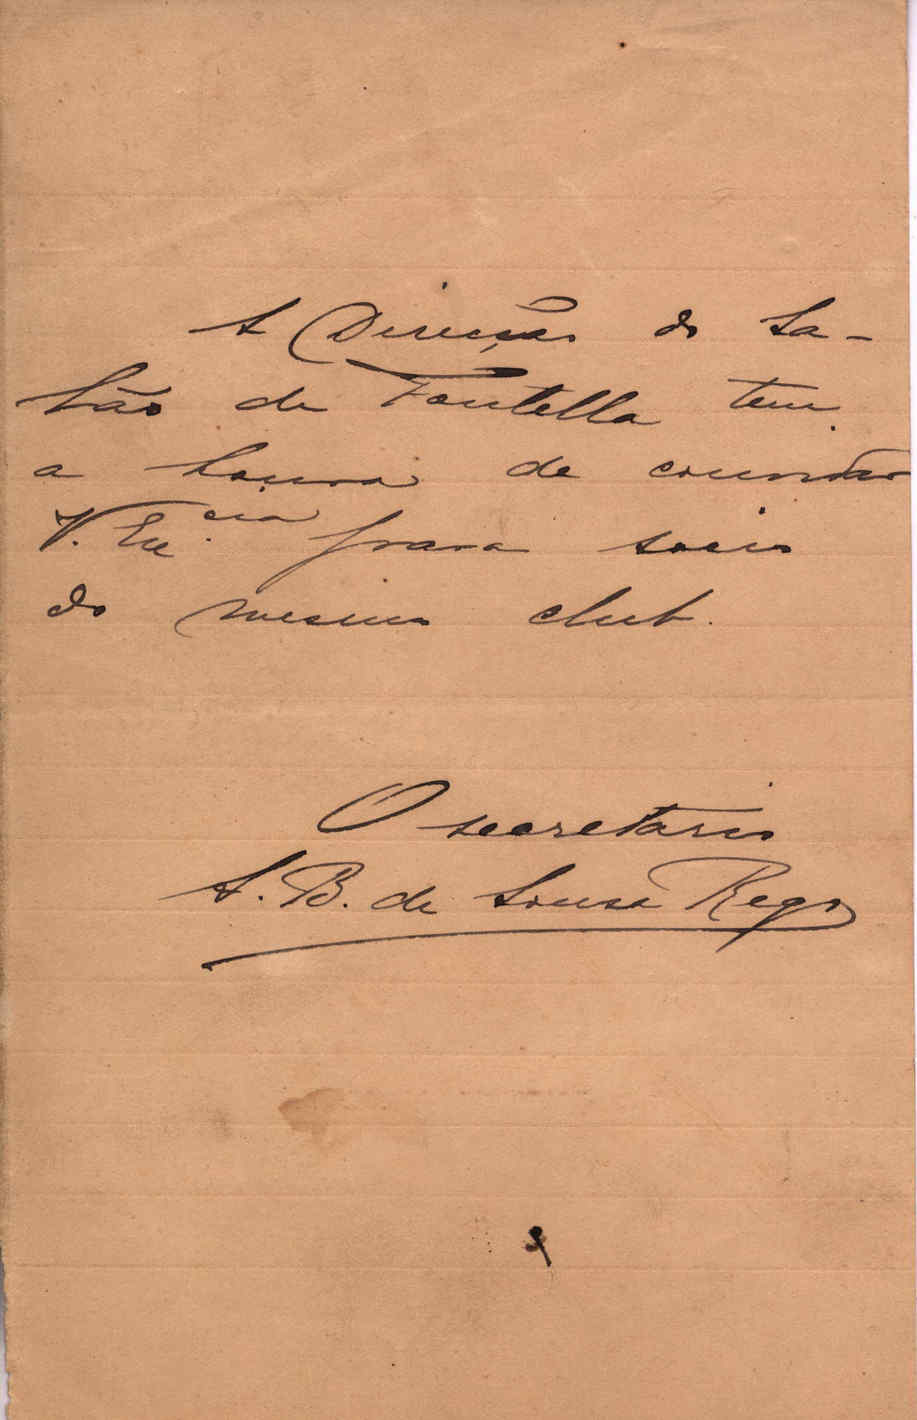 A Direcção do Sa-
lão de Fontella tem
a honra de convidar
V. Ex.cia para socio
do mesmo club.
O secretario
A. B. de Sousa Rego